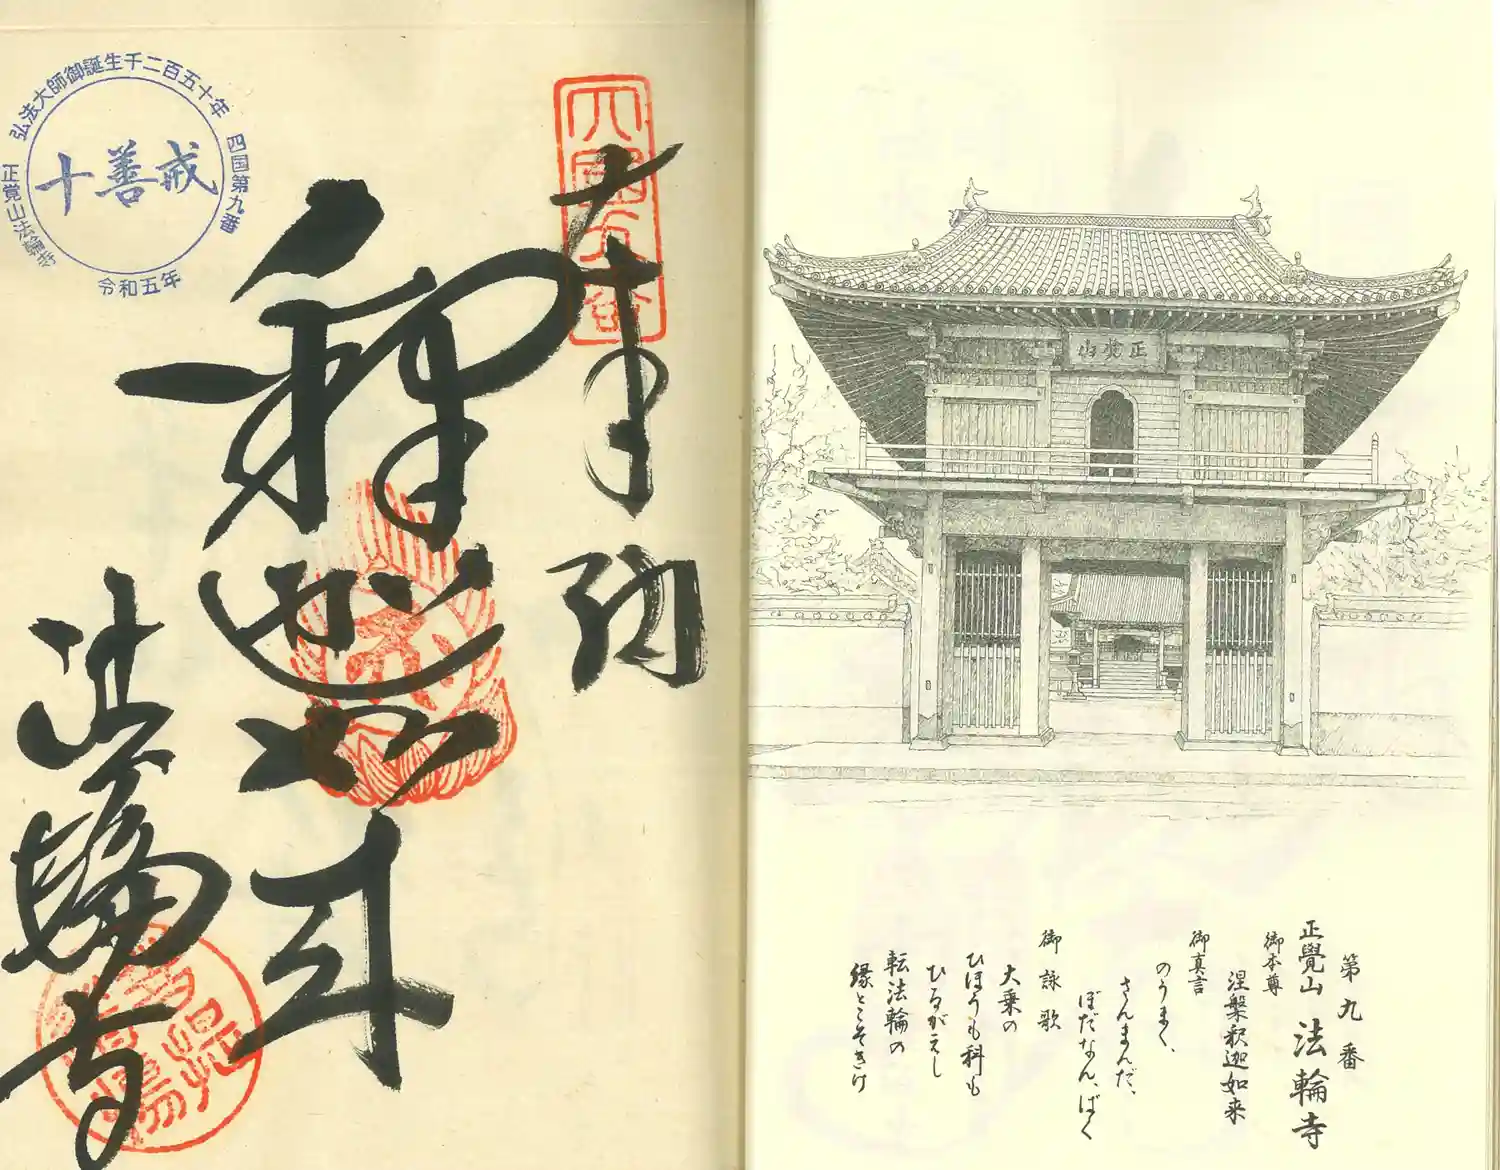 弘法大師御誕生千二百五十年
四国第九番
正覚山法輪寺
十善戒
令和五年
奉納
釋迦如来
法輪寺
正覚山
第九番
正覺山 法輪寺
御本尊
涅槃釈迦如来
御真言
のうまく、
さんまんだ、
ぼだなん、ばく
御詠歌
大乗の
ひほうも科も
ひるがえし
転法輪の
縁とこそきけ